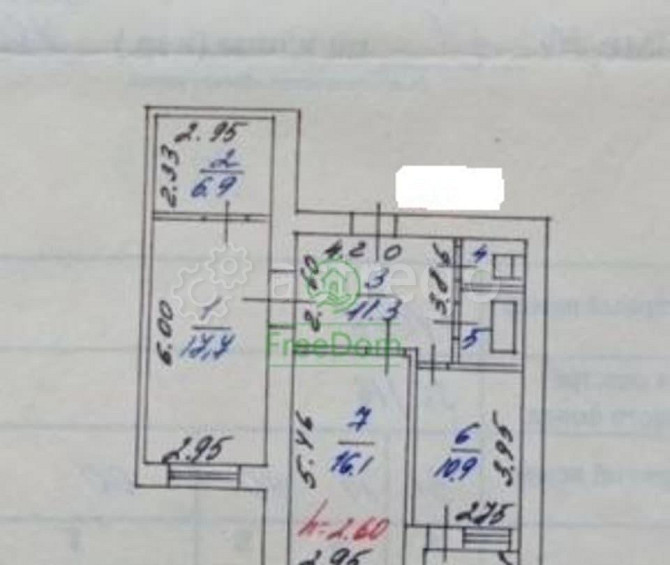 2.95
2.33
2
6.9
4.20
2.60
3
11.3
3.86
4
5
6.00
1
17,7
FreeDom
2.95
5.46
7
16.1
6
10.9
3.95
h=2.60
2.95
2.75